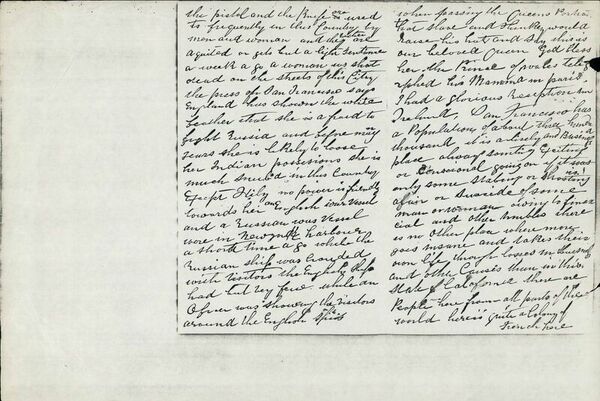 the pistol and the knife are used
to frequently in this Country by
men and woman and they are often
aquited or gets but a light Sentence
a week a go a woman was shot
dead on the streets of this City
the press of San Francisco says
England has shown the white
feather that she is a fraid to
fight Russia and before many
years she is likely to loose
her Indian possesions she is
much snubed in this Country
Except no power is friendly
towards her an English war vessel
and a Russian was vessel
were in Newyork harbour
a short time a go while the
Russian ship was crowded
with visitors the English Ship
had but very few while an
Oficer was showing the visitors
around the English Ship
when passing the Queens Portrait
that Slave and flunky would
raise his hat and Say this is
our beloved Queen God bless
her the Prince of wales teleg
rphed his Mamma in paris
I had a glorious Reception in
Ireland. San Francisco has
a Population of about three hundred
thousand it is a lively and Business
place always something Exciting
or Censasonal going on if it was
only some Stabing or Shooting
afair or Sueside of some
man or woman owing to finan
cial and other trubles there
is no other place when more
goes insane and takes their
own life through losses in business
and other Causes than in this
State of California there are
People here from all parts of the
world here is quite a Colony of
french here